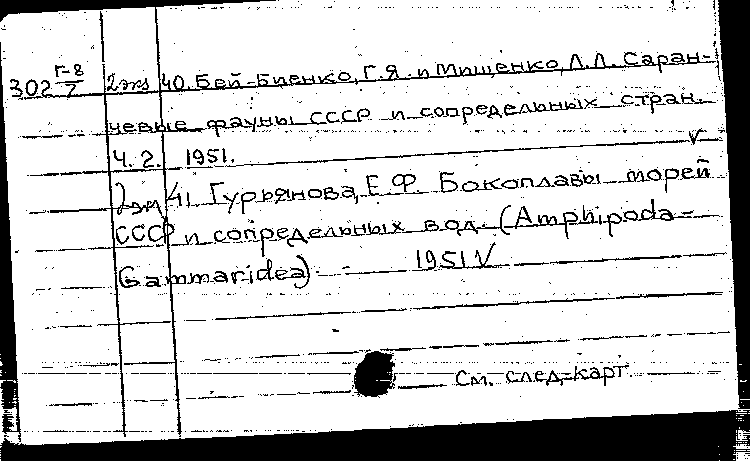 302 Г-8/7 2 экз 40. Бей-Биенко, Г.Я. и Мищенко, Л.Л. Саран-
чевые фауны СССР и сопредельных стран.
Ч. 2. 1951. V
2 экз 41 Гурьянова, Е.Ф. Бокоплавы морей
СССР и сопредельных вод. (Amphipoda-
Gammaridea). - 1951 V
См. след. карт.